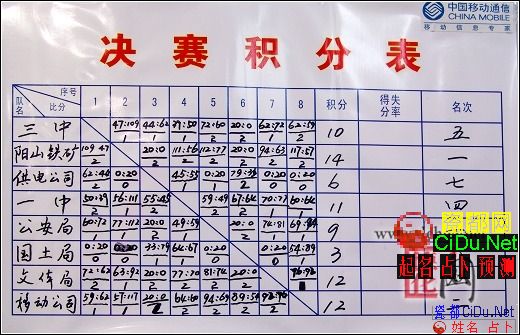 中国移动通信
CHINA MOBILE
移动信息专家
决赛积分表
序号 比分 队名 1 2 3 4 5 6 7 8 积分 得失分率 名次
三中 47:109 44:62 39:50 72:60 20:0 62:72 62:59 10 五
1 1 1 2 2 1 2
阳山铁矿 109:47 20:0 111:56 112:77 20:0 94:63 117:57 14 一
2 2 2 2 2 2 2
供电公司 62:44 0:20 45:55 0:20 79:33 0:20 0:20 6 七
2 0 1 0 2 0 0
一中 50:39 56:111 55:45 59:49 67:64 70:77 11 四
2 1 2 2 2 1
公安局 60:72 77:112 20:0 49:59 20:0 74:81 9
1 1 2 1 2 1
国土局 0:20 0:20 33:79 64:67 0:20 0:20 54:89 3
0 0 1 1 0 0 1
文体局 72:62 20:0 77:70 81:74 20:0 12
2 1 2 2 2 2
移动公司 59:62 57:117 20:0 64:60 94:69 89:54 12
1 1 2 2 2
瓷都网
CiDu.Net
起名 占卜 预测
瓷都CiDu.Net
姓名 占卜